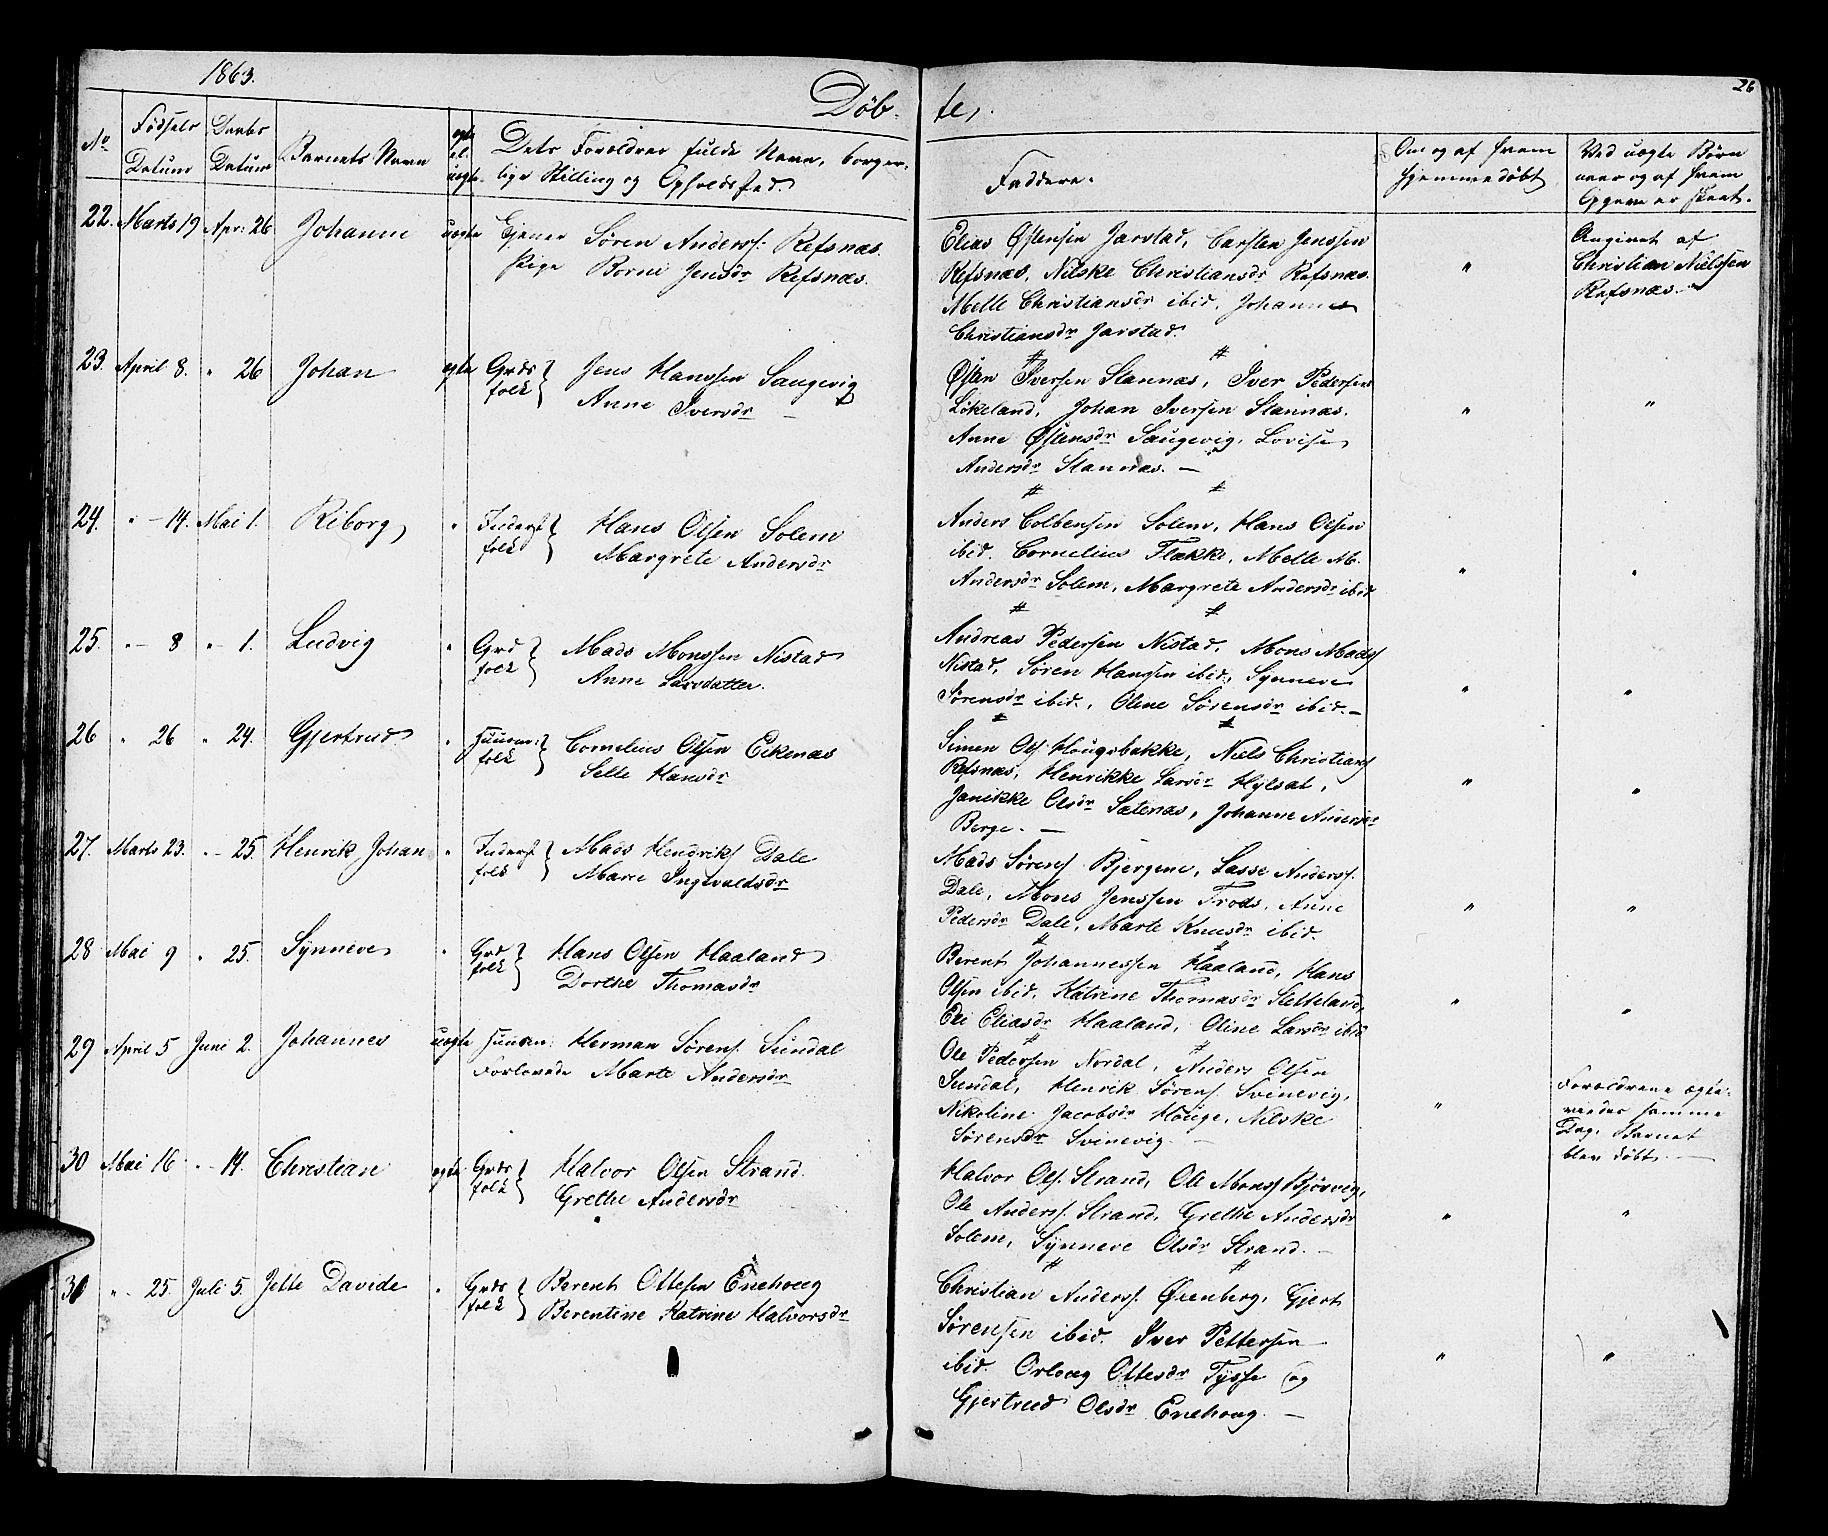 1863.
Døbte.
26
No
Fødsels Datum
Daabs Datum
Barnets Navn
ægte el. uægte.
Dets Forældres fulde Navn, borgerlige Stilling og Opholdssted.
Faddere.
Om og af hvem hjemmedøbt
Ved uægte Børn naar og af hvem Opgave er skeet.
22. Marts 19 Apr: 26 Johanne uægte Ejener Søren Anderss: Refsnæs.
Pige Borni Jensdr Refsnæs.
Elias Østensen Jarstad, Carsten Jenssen
Refsnæs, Nilske Christiansdr Refsnæs.
Melle Christiansdr ibid, Johanne
Christiansdr Jarstad.
"
Angivet af
Christian Nielssen
Refsnæs.
23. April 8. " 26 Johan ægte Grds folk } Jens Hanssen Saugevig
Anne Iversdr —
Østen Iversen Stannæs, Iver Pedersen
Løkeland, Johan Iversen Stannæs.
Anne Østensdr Saugevig, Lovise
Andersdr Stannæs. —
" "
24. " — 14. Mai 1. Riborg " Inderst folk } Hans Olsen Solem
Margrete Andersdr
Anders Colbensen Solem, Hans Olsen
ibid. Cornelius Flække, Melle M.
Andersdr Solem, Margrete Andersdr ibid
" "
25. " — 8 " — 1. Ludvig " Grd folk } Mads Monssen Nistad
Anne Larsdatter.
Andreas Pedersen Nistad, Mons Madss
Nistad, Søren Hanssen ibid, Synneve
Sørensdr ibid., Oline Sørensdr ibid. —
" "
26 " 26 " 24. Gjertrud " Huusm: folk } Cornelius Olsen Eikenæs
Sille Hansdr
Simen Ols: Hougsbakke, Niels Christians
Refsnæs, Henrikke Larsdr Hylsæt,
Janikke Olsdr Sætenæs, Johanne Andersdr
Berge. —
" "
27. Marts 23. " — 25. Henrik Johan " Inderst folk } Mads Hendriks Dale
Marie Ingvaldsdr
Mads Sørens Bjergene, Lasse Anderss.
Dale, Mons Jenssen Trods, Anne
Pedersdr Dale, Marte Knudsdr ibid.
" "
28 Mai 9 " 25. Synneve " Grd folk } Hans Olsen Haaland
Dorthe Thomasdr
Berent Johannessen Haaland, Hans
Olsen ibid, Katrine Thomasdr Sletteland,
Eli Eliasdr Haaland, Oline Larsdr ibid
" "
29 April 5 Juni 2. Johannes uægte Huusm: Herman Sørens. Sundal
Forlovede Marte Andersdr
Ole Pedersen Nordal, Anders Olsen
Sundal, Henrik Sørens. Svinevig,
Nikoline Jacobsdr Houge, Nilske
Sørensdr Svinevig. —
"
Forældrene ægte-
viedes samme
Dag, Barnet
blev døbt. —
30 Mai 16 " — 14. Christian ægte Grds folk } Halvor Olsen Strand.
Grethe Andersdr
Halvor Ols. Strand, Ole Monss Bjørvig,
Ole Anderss. Strand, Grethe Andersdr
Solem, Synneve Olsdr Strand. —
" "
31 " — 25. Juli 5. Jette Davide " Grds folk } Berent Ottesen Enehoug
Berentine Katrine Halvorsdr
Christian Anderss. Ørenberg, Gjert
Sørensen ibid. Iver Pettersen
ibid. Orloug Ottesdr Tysse og
Gjertrud Olsdr Enehoug. —
" "